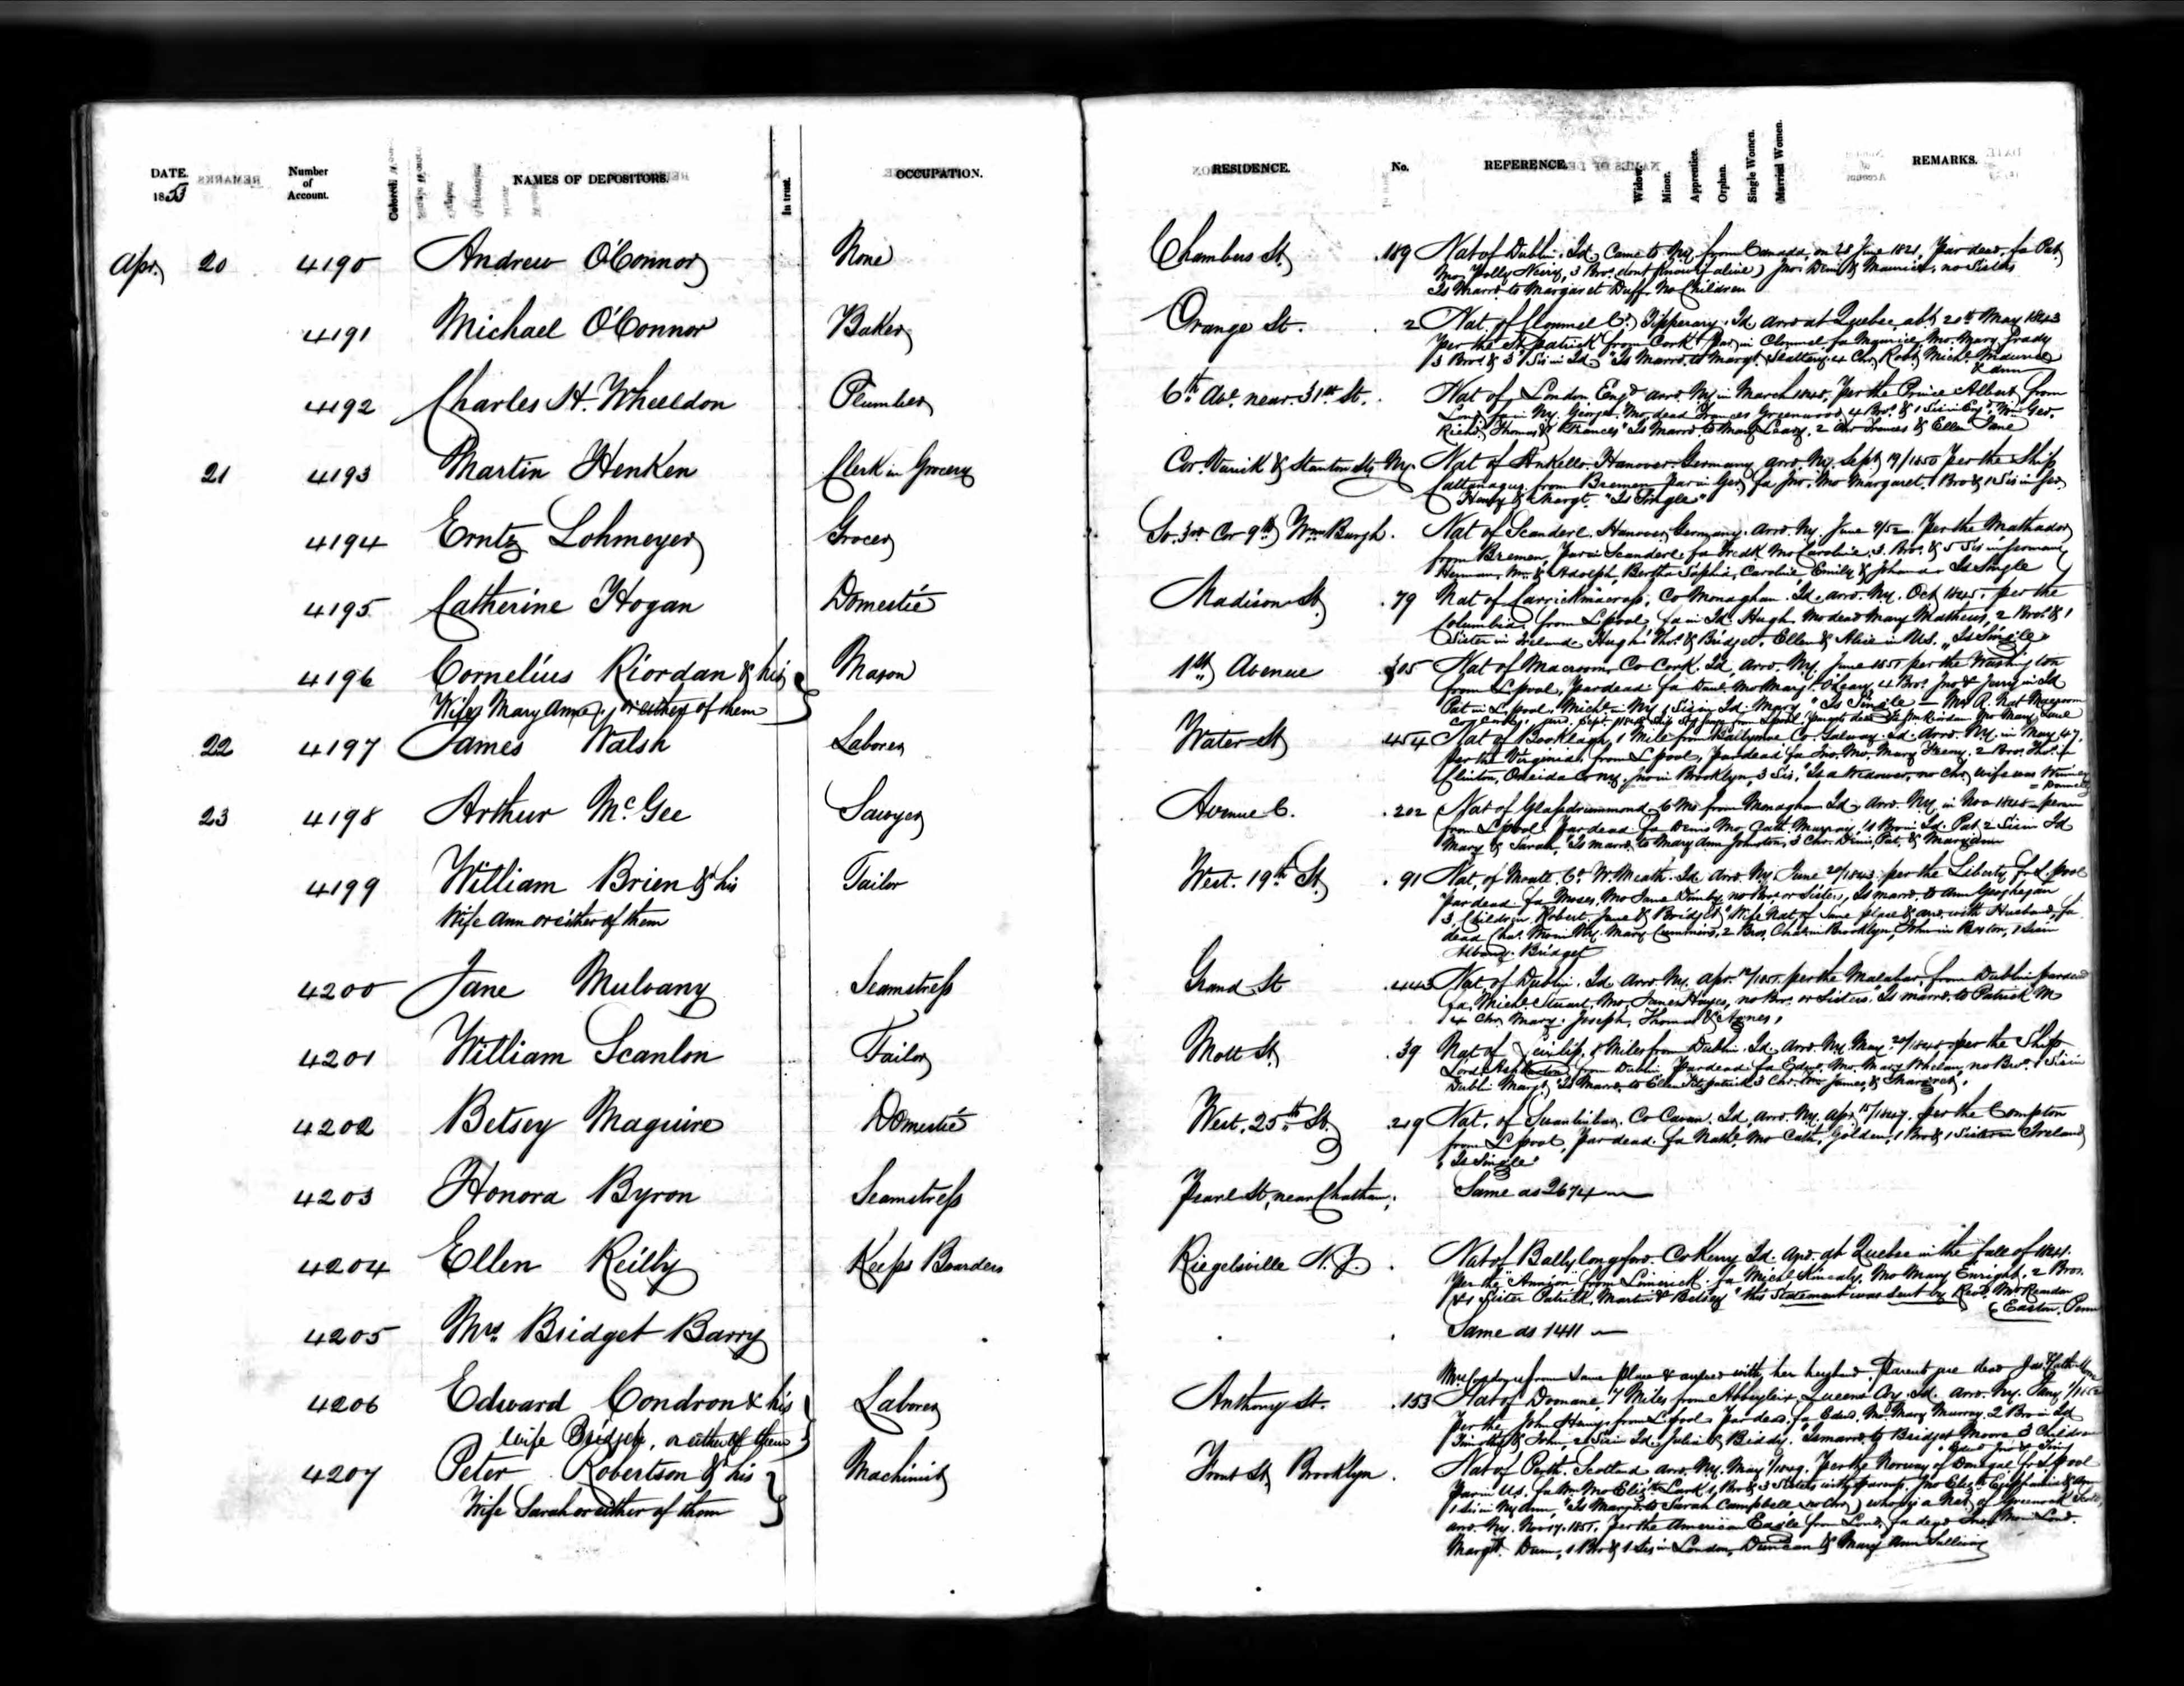 DATE.
1853
Number
of
Account.
Colored.
NAMES OF DEPOSITORS.
In trust.
OCCUPATION.
RESIDENCE.
No.
REFERENCE.
Widow.
Minor.
Apprentice.
Orphan.
Single Women.
Married Women.
REMARKS.
Apr. 20 4190 Andrew O'Connor None Chambers St. 189 Nat of Dublin. Id. Came to NY from Canada, on 28 June 1821, Par dead, fa Pat,
Mo. Polly Neiry, 3 Bros dont know if alive, Jno. Denis & Maurice, no Sisters
Is Marrd to Margaret Duff. No Children
4191 Michael O'Connor Baker Orange St. 2 Nat. of Clonmel Co. Tipperary. Id. arrd at Quebec abt 20th May 1843
Per the St Patrick from Cork Par in Clonmel fa Maurice, Mo. Mary Grady
3 Bros & 3 Sis in Id. "Is Marrd to Margt. Slattery. 4 Chn. Robt. Michl. Maurice
& Ann
4192 Charles H. Wheeldon Plumber 6th Ave. near 31st St. Nat of London Engd arrd. NY in March 1845. Per the Prince Albert from
Lond. fa in NY. George. Mo. dead Frances Greenwood, 4 Bros. & 1 Sis in Engd. Wm Geo.
Richd. Thomas & Frances" Is Marrd to Mary Leary. 2 Chn Frances & Ellen Jane
21 4193 Martin Henken Clerk in Grocery Cor. Varick & Stanton Sts NY. Nat of Ankello. Hanover. Germany arrd. NY. Sept 19/1850 Per the Ship
from Bremen Par in Ger, fa Jno. Mo Margaret. 1 Bro & 1 Sis in Ger
Henry & Margt. "Is Single"
4194 Erntz Lohmeyer Grocer So. 3rd Cor 9th Wm Burgh. Nat of Scanderl. Hanover, Germany. Arrd. NY. June 9/52. Per the Mathador
from Bremen, Par in Scanderl. fa Fredk Mo Caroline. 3 Bros. & 5 Sis in Germany
Herman, Wm & Adolph, Bertha Sophia, Caroline Emily & Johana. Is Single
4195 Catherine Hogan Domestic Madison St. 79 Nat of Carrickmacross, Co Monaghan. Id. arrd. NY. Oct 1845. per the
Columbia from Lpool, fa in Id. Hugh, Mo dead Mary Mathews, 2 Bros. & 1
Sister in Ireland. Hugh Thos. & Bridget. Ellen & Alice in U.S. "Is Single"
4196 Cornelius Riordan & his Mason 1st Avenue 305 Nat of Macroom Co Cork. Id. Arrd. NY. June 1851 per the Washington
Wife Mary Anne, or either of them from Lpool, Par dead fa Danl. Mo Mary O'Leary. 4 Bros. Jno & Jerry in Id
Pat in Lpool. Michl in NY, 1 Sis in Id. Mary "Is Single — Mrs R. Nat Macroom
22 4197 James Walsh Laborer Water St 454 Nat of Booklagh, 1 Mile from Ballymoe Co. Galway. Id. Arrd. NY. in May 47,
per the Virginia, from Lpool, Par dead fa Jno. Mo. Mary Freny. 2 Bro. Thos. in
Clinton, Oneida Co NY, Jno in Brooklyn, 3 Sis, "Is a Widower, no Chn, wife was Winney
= Donnelly
23 4198 Arthur McGee Sawyer Avenue C. 202 Nat of Glassdrummond 6 Ms from Monaghan Id. arrd. NY. in Nov 1848
from Lpool Par dead fa Denis Mo Cath. Murray, 1 Bro in Id. Pat. 2 Sis in Id
Mary & Sarah, "Is marrd to Mary Ann Johnston, 3 Chn. Denis, Pat. & Mary Ann
4199 William Brien & his Tailor West. 19th St. 91 Nat. of Moate Co. W. Meath. Id. Arrd. NY. June per the Liberty fr Lpool
Wife Ann or either of them Par dead fa Moses, Mo Jane no Bro. or Sisters, Is marrd. to Ann Geoghegan
3 Children Robert. Jane & Bridget. Wife Nat. of Same place & arrd. with Husband, fa.
dead Chas. Mo in NY. Mary Cummins, 2 Bros. Chas in Brooklyn, John in Boston, 1 Sis in
Albany. Bridget
4200 Jane Mulvany Seamstress Grand St 443 Nat. of Dublin. Id Arrd. NY. Apr. 12/1851. per the Malabar, from Dublin, par dead
fa, Michl Stuart, Mo, James Hayes, no Bro. or Sisters. Is marrd. to Patrick M
4 Chn. Mary. Joseph, Thomas & Agnes,
4201 William Scanlon Tailor Mott St. 39 Nat of Leixlip, 8 Miles from Dublin. Id. Arrd. NY. May per the Ship
Lord Ashburton, from Dublin Par dead fa Edwd. Mo. Mary Whelan, no Bro. 1 Sis in
Dublin Margt. Is Marrd. to Ellen Fitzpatrick 3 Chn. James, & Margret,
4202 Betsey Maguire Domestic West. 25th St. 219 Nat. of Swanlinbar, Co Cavan. Id, Arrd. NY. Apr. 15/1847. per the Compton
from Lpool, Par dead. fa Nathl. Mo Cath. Golden, 1 Bro & 1 Sister in Ireland
"Is Single"
4203 Honora Byron Seamstress Pearl St, near Chatham, Same as 2674
4204 Ellen Reilly Keeps Boarders Riegelsville N.J. Nat of Ballylongford. Co Kerry Id. and. at Quebec in the fall of 1841.
Per the from Limerick. fa Michl Kinealy. Mo Mary Enright. 2 Bros.
& 1 Sister Patrick, Martin & Betsey "this Statement was sent by Revd. Mr Reardon
Easton, Penn
4205 Mrs. Bridget Barry Same as 1411
Mrs from Same Place & arrived with her husband. Parents are dead Jas & Cath.
4206 Edward Condron & his Laborer Anthony St. 153 Nat of Domane, 7 Miles from Abbeyleix Queens Cy. Id. Arrd. NY. Jany
wife Bridget, or either of them Per the John Henry from Lpool Par dead. fa Edwd. Mo. Mary Murray. 2 Bro in Id
Timothy & John, 2 Sis in Id. Julia & Biddy. "Is marrd. to Bridget Moore 3 Children
4207 Peter Robertson & his Machinist Front St. Brooklyn. Nat of Perth. Scotland, Arrd. NY. May Per the Norway of Donegal fr Lpool
Wife Sarah or either of them Par in U.S. fa Wm Mo Clark, 1 Bro & 3 Sisters with parents, Jno & Ann
1 Sis in NY Ann, "Is Marrd. to Sarah Campbell (no Chn) who is a Nat of Greenock Scotd.
arrd. NY. Nov 17. 1851. Per the American Eagle from Lond. fa dead Mo in Lond.
Margt. Dunn, 1 Bro & 1 Sis in London, Duncan & Mary Ann Sullivan